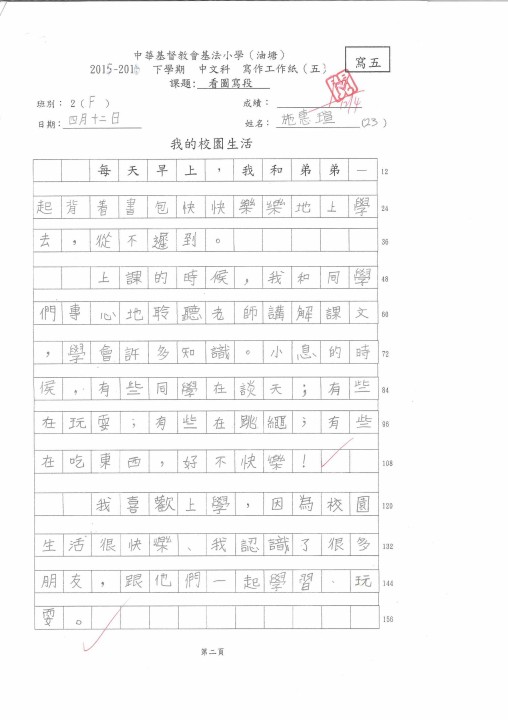 中華基督教會基法小學（油塘）
寫五
2015-2016 下學期 中文科 寫作工作紙（五）
課題：看圖寫段
班別：2（F）
成績：
12/4
日期：四月十二日
姓名：施惠瑄(23)
我的校園生活
每天早上，我和弟弟一 12
起背着書包快快樂樂地上學 24
去，從不遲到。 36
上課的時候，我和同學 48
們專心地聆聽老師講解課文 60
，學會許多知識。小息的時 72
候，有些同學在談天；有些 84
在玩耍；有些在跳繩；有些 96
在吃東西，好不快樂！ 108
我喜歡上學，因為校園 120
生活很快樂、我認識了很多 132
朋友，跟他們一起學習、玩 144
耍。 156
第二頁